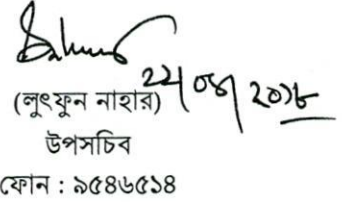 ২২/০৪/২০১৮
(লুৎফুন নাহার)
উপসচিব
ফোন : ৯৫৪৬৫১৪